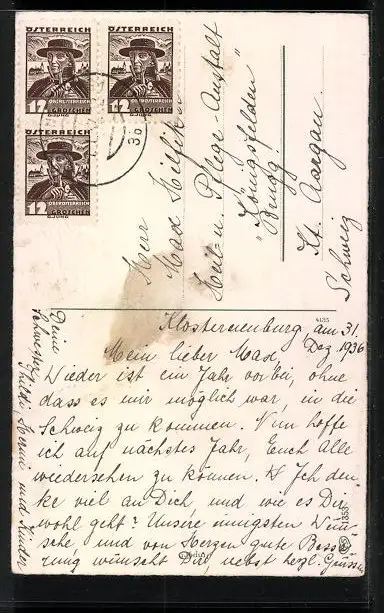 ÖSTERREICH
12
OBERÖSTERREICH
GROSCHEN
ÖSTERREICH
12
OBERÖSTERREICH
GROSCHEN
ÖSTERREICH
12
OBERÖSTERREICH
GROSCHEN
Herr
Max
Heil- u. Pflege-Anstalt
"Königsfelden"
Brugg
Kt. Aargau.
Schweiz
Klosterneuburg, am 31.
Dez 1936
Mein lieber Max,
Wieder ist ein Jahr vorbei, ohne
dass es mir möglich war, in die
Schweiz zu kommen. Nun hoffe
ich auf nächstes Jahr, Euch alle
wiedersehen zu können. Ich den-
ke viel an Dich, und wie es Dir
wohl geht? Unsere innigsten Wün-
sche, und von Herzen gute Besse-
rung wünscht Dir nebst herzl. Grüssen
Deine
Schwester
und Kinder